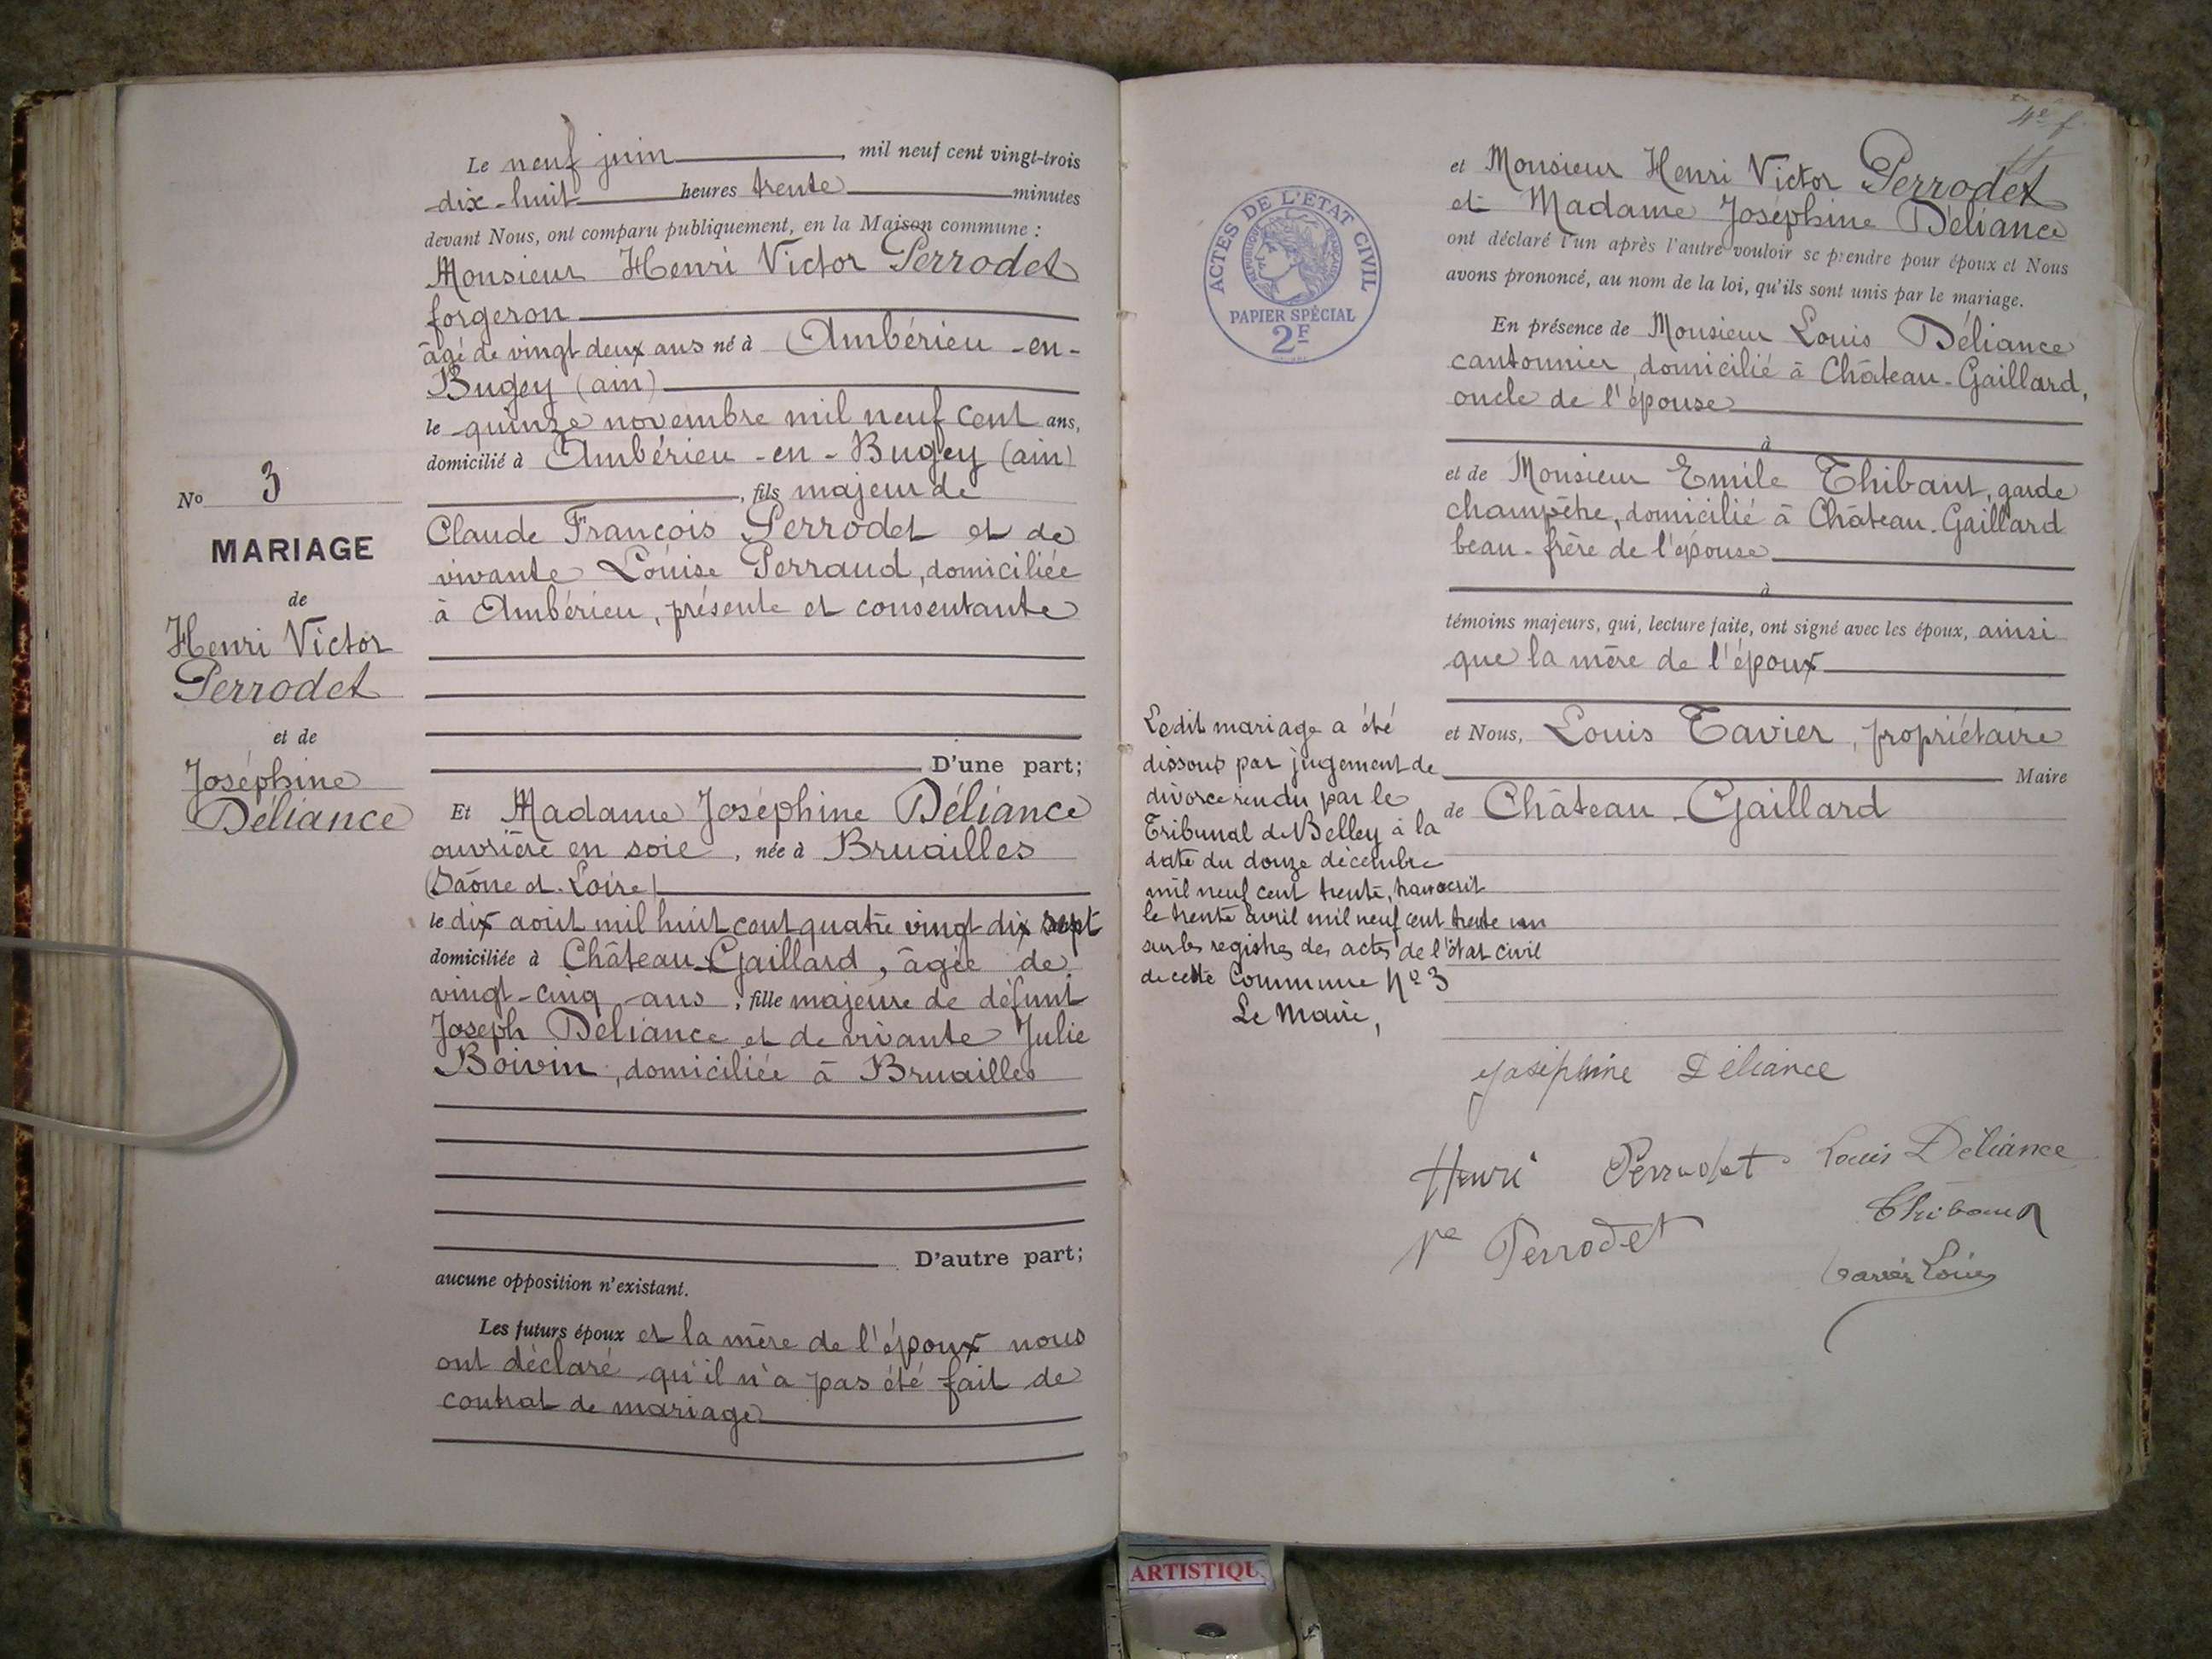 Le neuf juin mil neuf cent vingt-trois
dix-huit heures trente minutes
devant Nous, ont comparu publiquement, en la Maison commune :
Monsieur Henri Victor Perrodet
forgeron
âgé de vingt deux ans né à Ambérieu-en-
Bugey (ain)
le quinze novembre mil neuf cent ans,
domicilié à Ambérieu-en-Bugey (ain)
, fils majeur de
Claude François Perrodet et de
vivante Louise Perraud, domiciliée
à Ambérieu, présente et consentante
D'une part;
Et Madame Joséphine Déliance
ouvrière en soie, née à Bruailles
(Saône et Loire)
le dix août mil huit cent quatre vingt dix sept
domiciliée à Château-Gaillard, âgée de
vingt-cinq ans, fille majeure de défunt
Joseph Déliance et de vivante Julie
Boivin, domiciliée à Bruailles
D'autre part;
aucune opposition n'existant.
Les futurs époux et la mère de l'époux nous
ont déclaré qu'il n'a pas été fait de
contrat de mariage
No 3
MARIAGE
de
Henri Victor
Perrodet
et de
Joséphine
Déliance
4e f.
et Monsieur Henri Victor Perrodet
et Madame Joséphine Déliance
ont déclaré l'un après l'autre vouloir se prendre pour époux et Nous
avons prononcé, au nom de la loi, qu'ils sont unis par le mariage.
En présence de Monsieur Louis Déliance
cantonnier, domicilié à Château-Gaillard,
oncle de l'épouse
à
et de Monsieur Emile Thibaut, garde
champêtre, domicilié à Château-Gaillard
beau-frère de l'épouse
à
témoins majeurs, qui, lecture faite, ont signé avec les époux, ainsi
que la mère de l'époux
et Nous, Louis Tavier, propriétaire
Maire
de Château-Gaillard
ACTES DE L'ETAT CIVIL
REPUBLIQUE FRANÇAISE
PAPIER SPÉCIAL
2F
Ledit mariage a été
dissous par jugement de
divorce rendu par le
Tribunal de Belley à la
date du douze décembre
mil neuf cent trente, transcrit
le trente avril mil neuf cent trente un
sur les registres des actes de l'état civil
de cette Commune No 3
Le Maire,
Joséphine Déliance
Henri Perrodet Louis Déliance
Thibaut
Ve Perrodet
Tavier Louis
ARTISTIQU